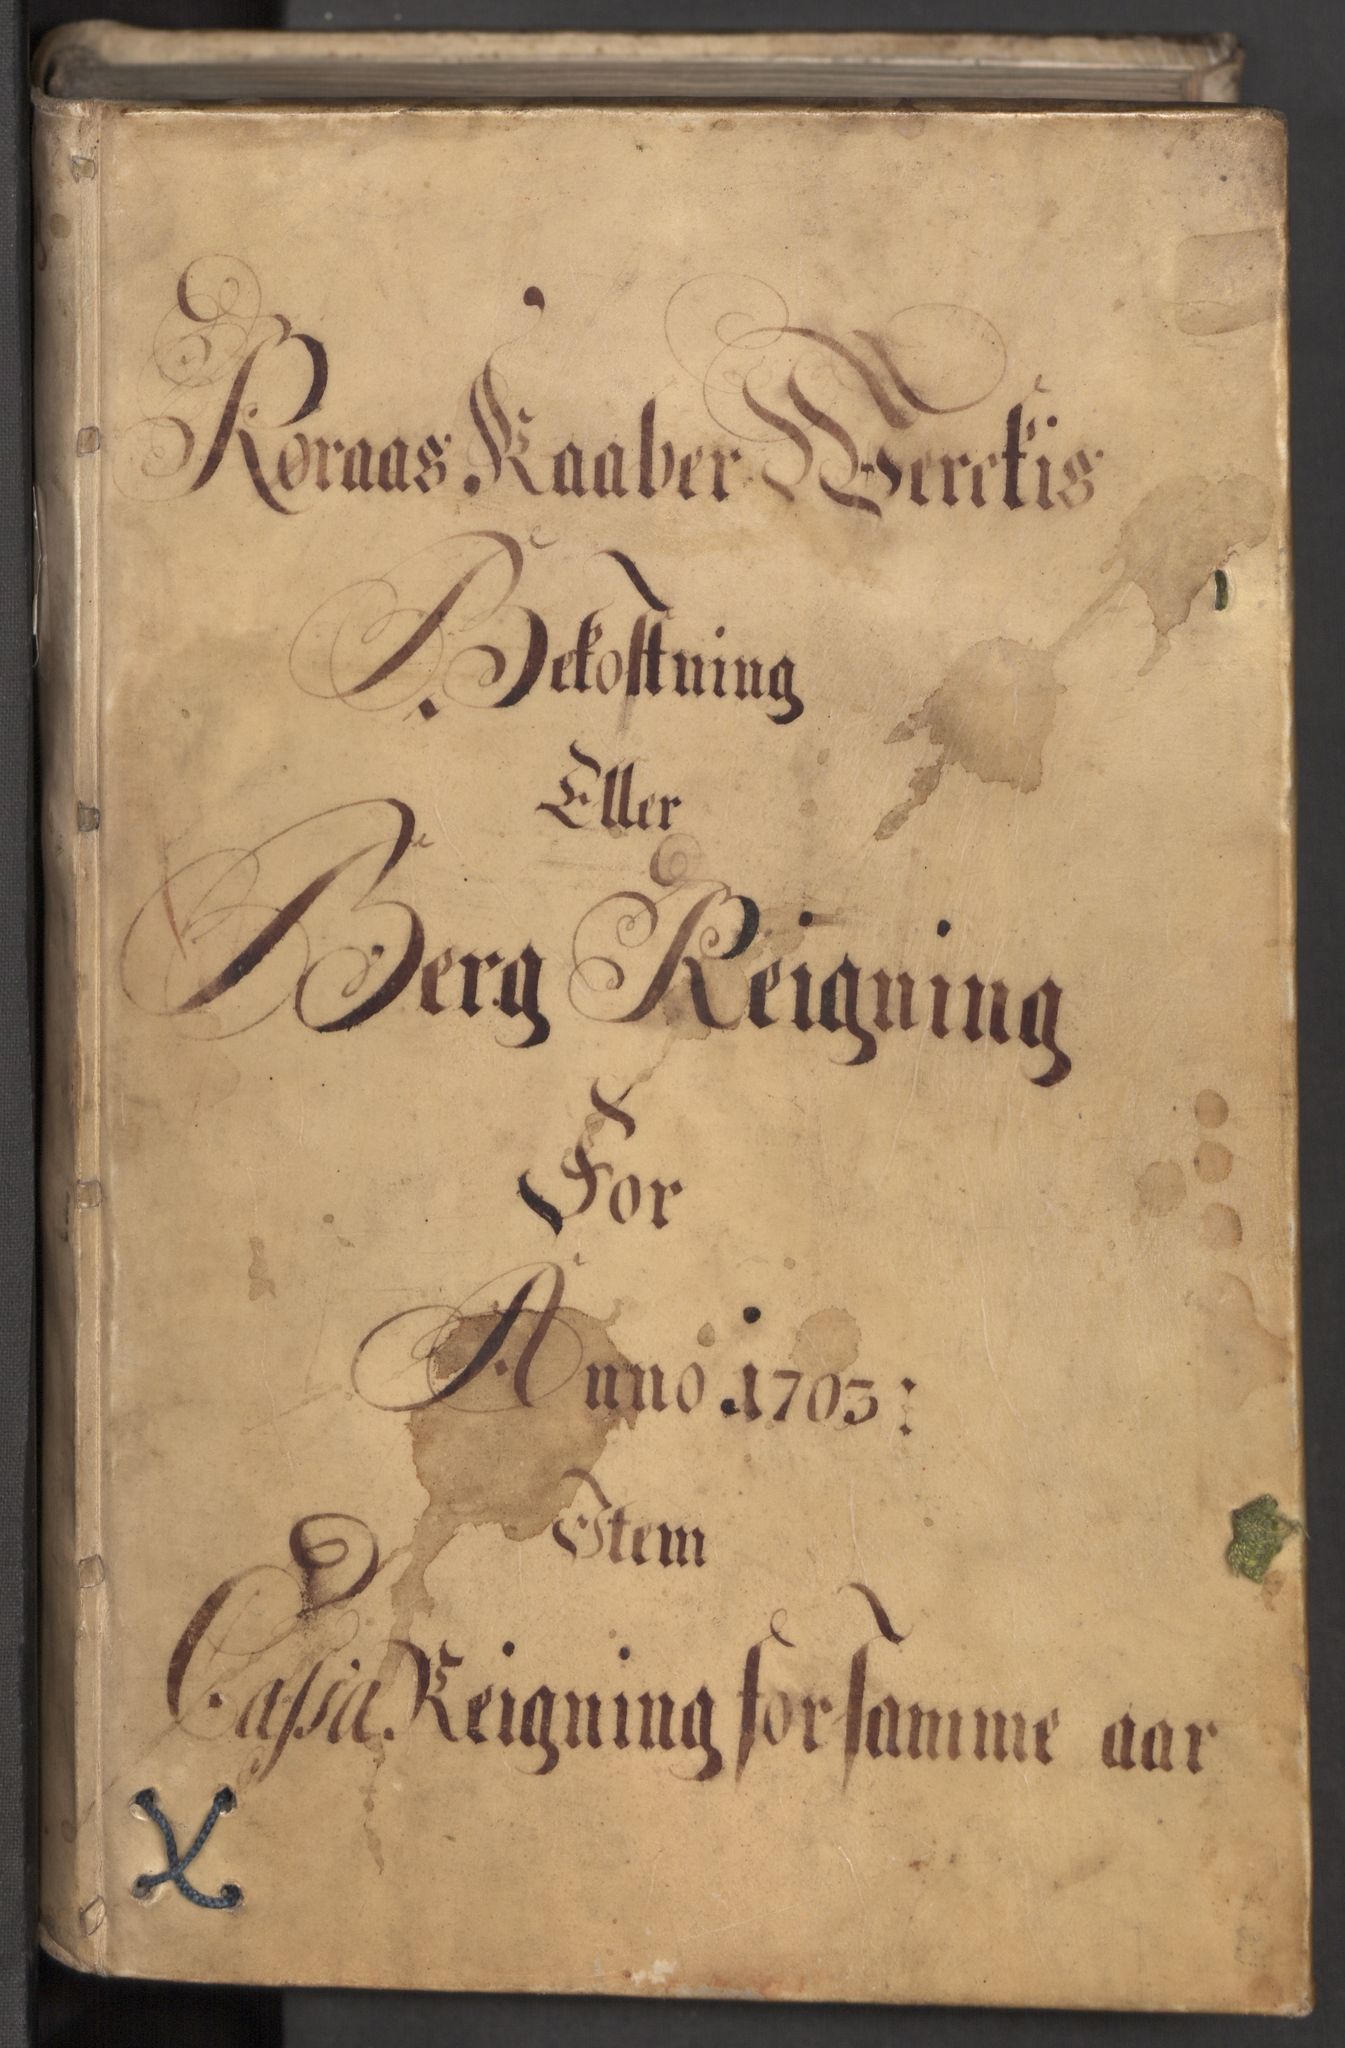 Røraas Kaaber Werckis
Bekostning
Eller
Berg Reigning
For
Anno 1703:
Item
Cassa Reigning for samme aar